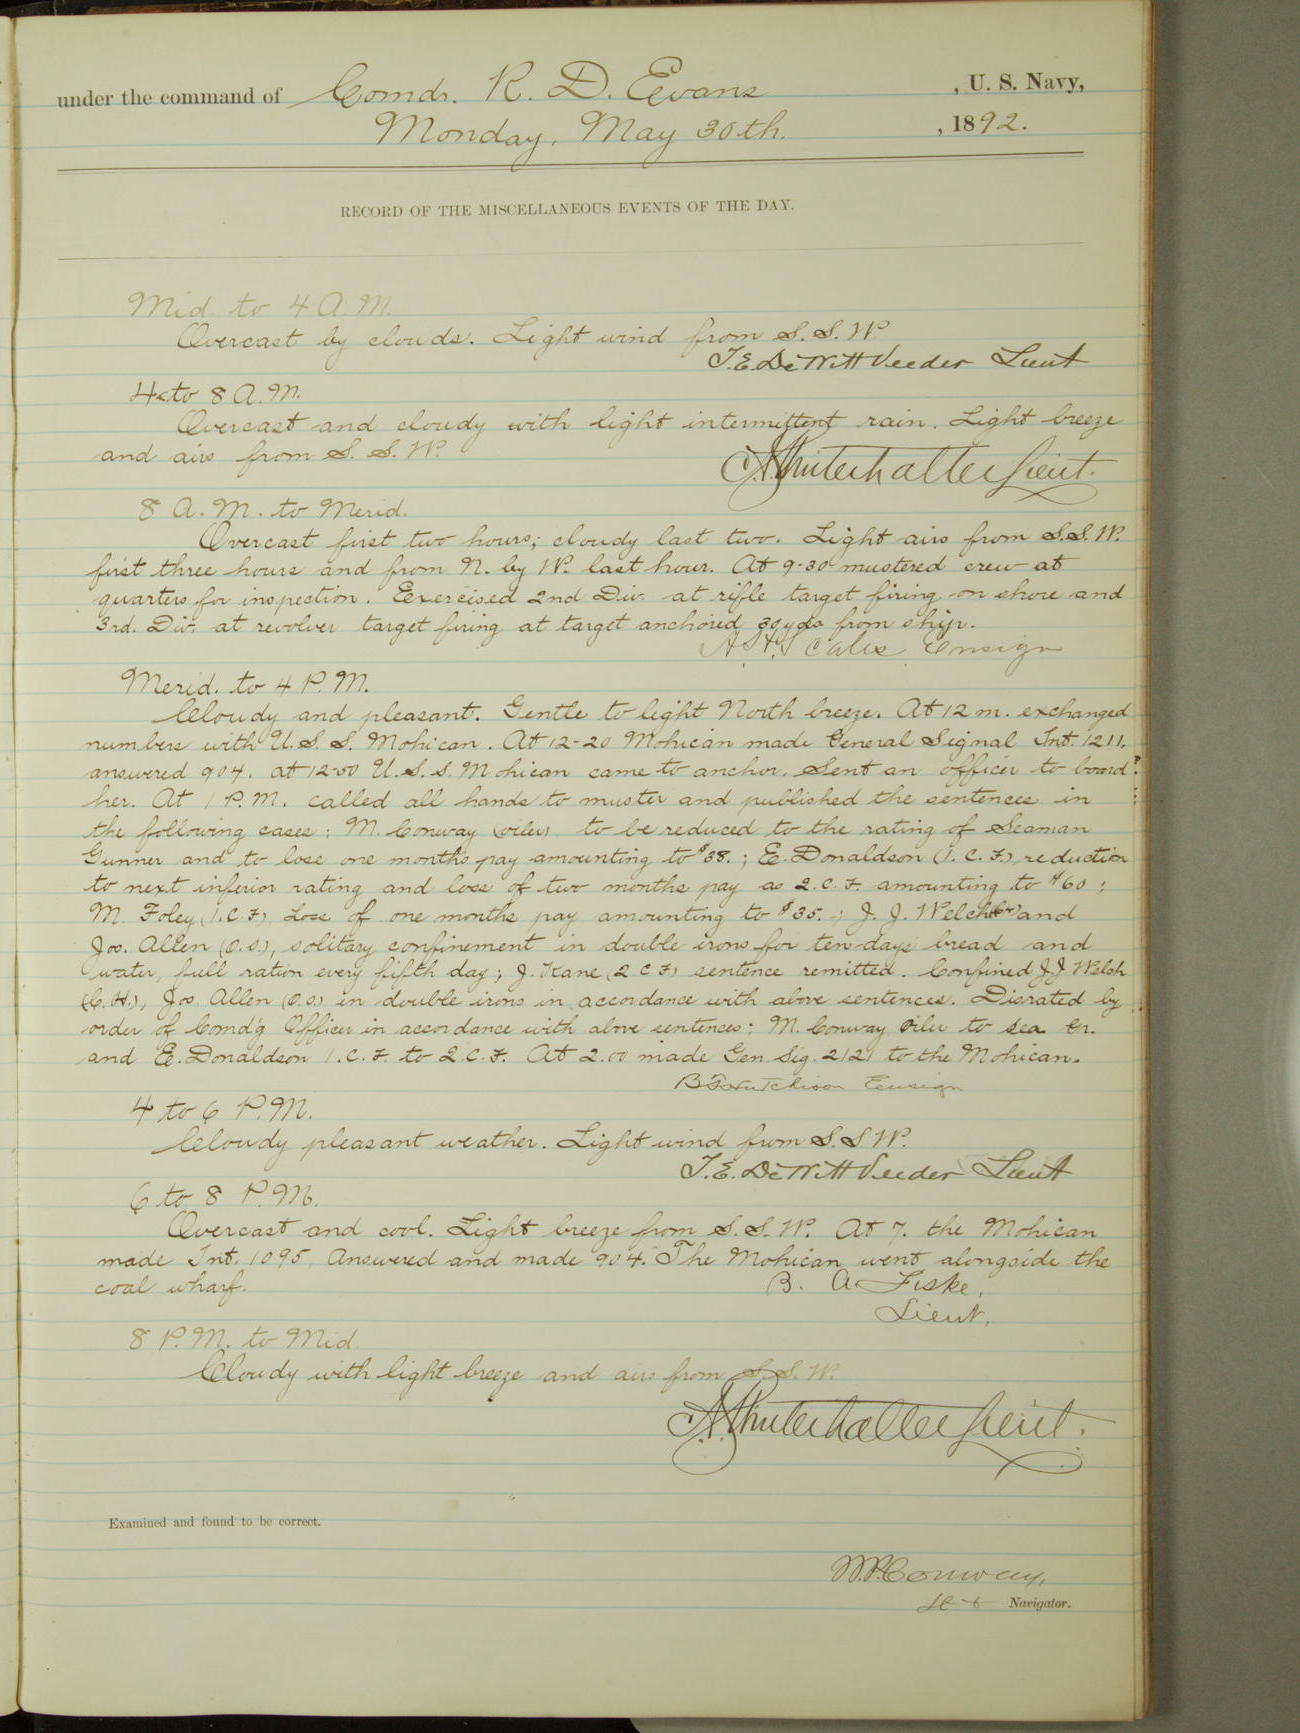 under the command of Comdr. R. D. Evans , U. S. Navy,
Monday, May 30th. , 1892.
RECORD OF THE MISCELLANEOUS EVENTS OF THE DAY.
Mid. to 4 A.M.
Overcast by clouds. Light wind from S.S.W.
T.E. DeWitt Veeder Lieut
4 to 8 A.M.
Overcast and cloudy with light intermittent rain. Light breeze
and airs from S. S. W.
A.G. Winterhalter Lieut.
8 A.M. to Merid.
Overcast first two hours; cloudy last two. Light airs from S.S.W.
first three hours and from N. by W. last hour. At 9-30 mustered crew at
quarters for inspection. Exercised 2nd Div. at rifle target firing on shore and
3rd. Div. at revolver target firing at target anchored 30 yds from ship.
A. H. Scales Ensign
Merid. to 4 P.M.
Cloudy and pleasant. Gentle to light North breeze. At 12 m. exchanged
numbers with U.S.S. Mohican. At 12-20 Mohican made General Signal Int. 1211.
answered 904. at 12-50 U.S.S. Mohican came to anchor. Sent an officer to board
her. At 1 P.M. called all hands to muster and published the sentences in
the following cases: M. Conway (oiler) to be reduced to the rating of Seaman
Gunner and to lose one months pay amounting to $38.; E. Donaldson (1.C.F.), reduction
to next inferior rating and loss of two months pay as 2.C.F. amounting to $60;
M. Foley (1.C.F) Loss of one months pay amounting to $35.; J. J. Welch and
Jos. Allen (O.S.), solitary confinement in double irons for ten days bread and
water, full ration every fifth day; J. Kane (2 C F) sentence remitted. Confined J.J. Welch
(C.H.), Jos. Allen (O.S.) in double irons in accordance with above sentences. Disrated by
order of Comd'g Officer in accordance with above sentences: M. Conway Oiler to Sea. Gr.
and E. Donaldson 1.C.F. to 2.C.F. At 2.00 made Gen. Sig. 2121 to the Mohican.
B F Hutchison Ensign
4 to 6 P.M.
Cloudy pleasant weather. Light wind from S.S.W.
T.E. DeWitt Veeder Lieut
6 to 8 P.M.
Overcast and cool. Light breeze from S.S.W. At 7. the Mohican
made Int. 1095. Answered and made 904. The Mohican went alongside the
coal wharf.
B. A. Fiske,
Lieut.
8 P.M. to Mid.
Cloudy with light breeze and airs from S.S.W.
A.G. Winterhalter Lieut.
Examined and found to be correct.
W.P. Conway,
Navigator.